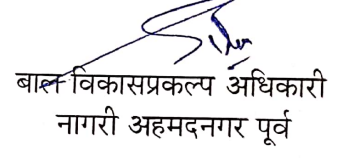 बाल विकासप्रकल्प अधिकारी
नागरी अहमदनगर पूर्व